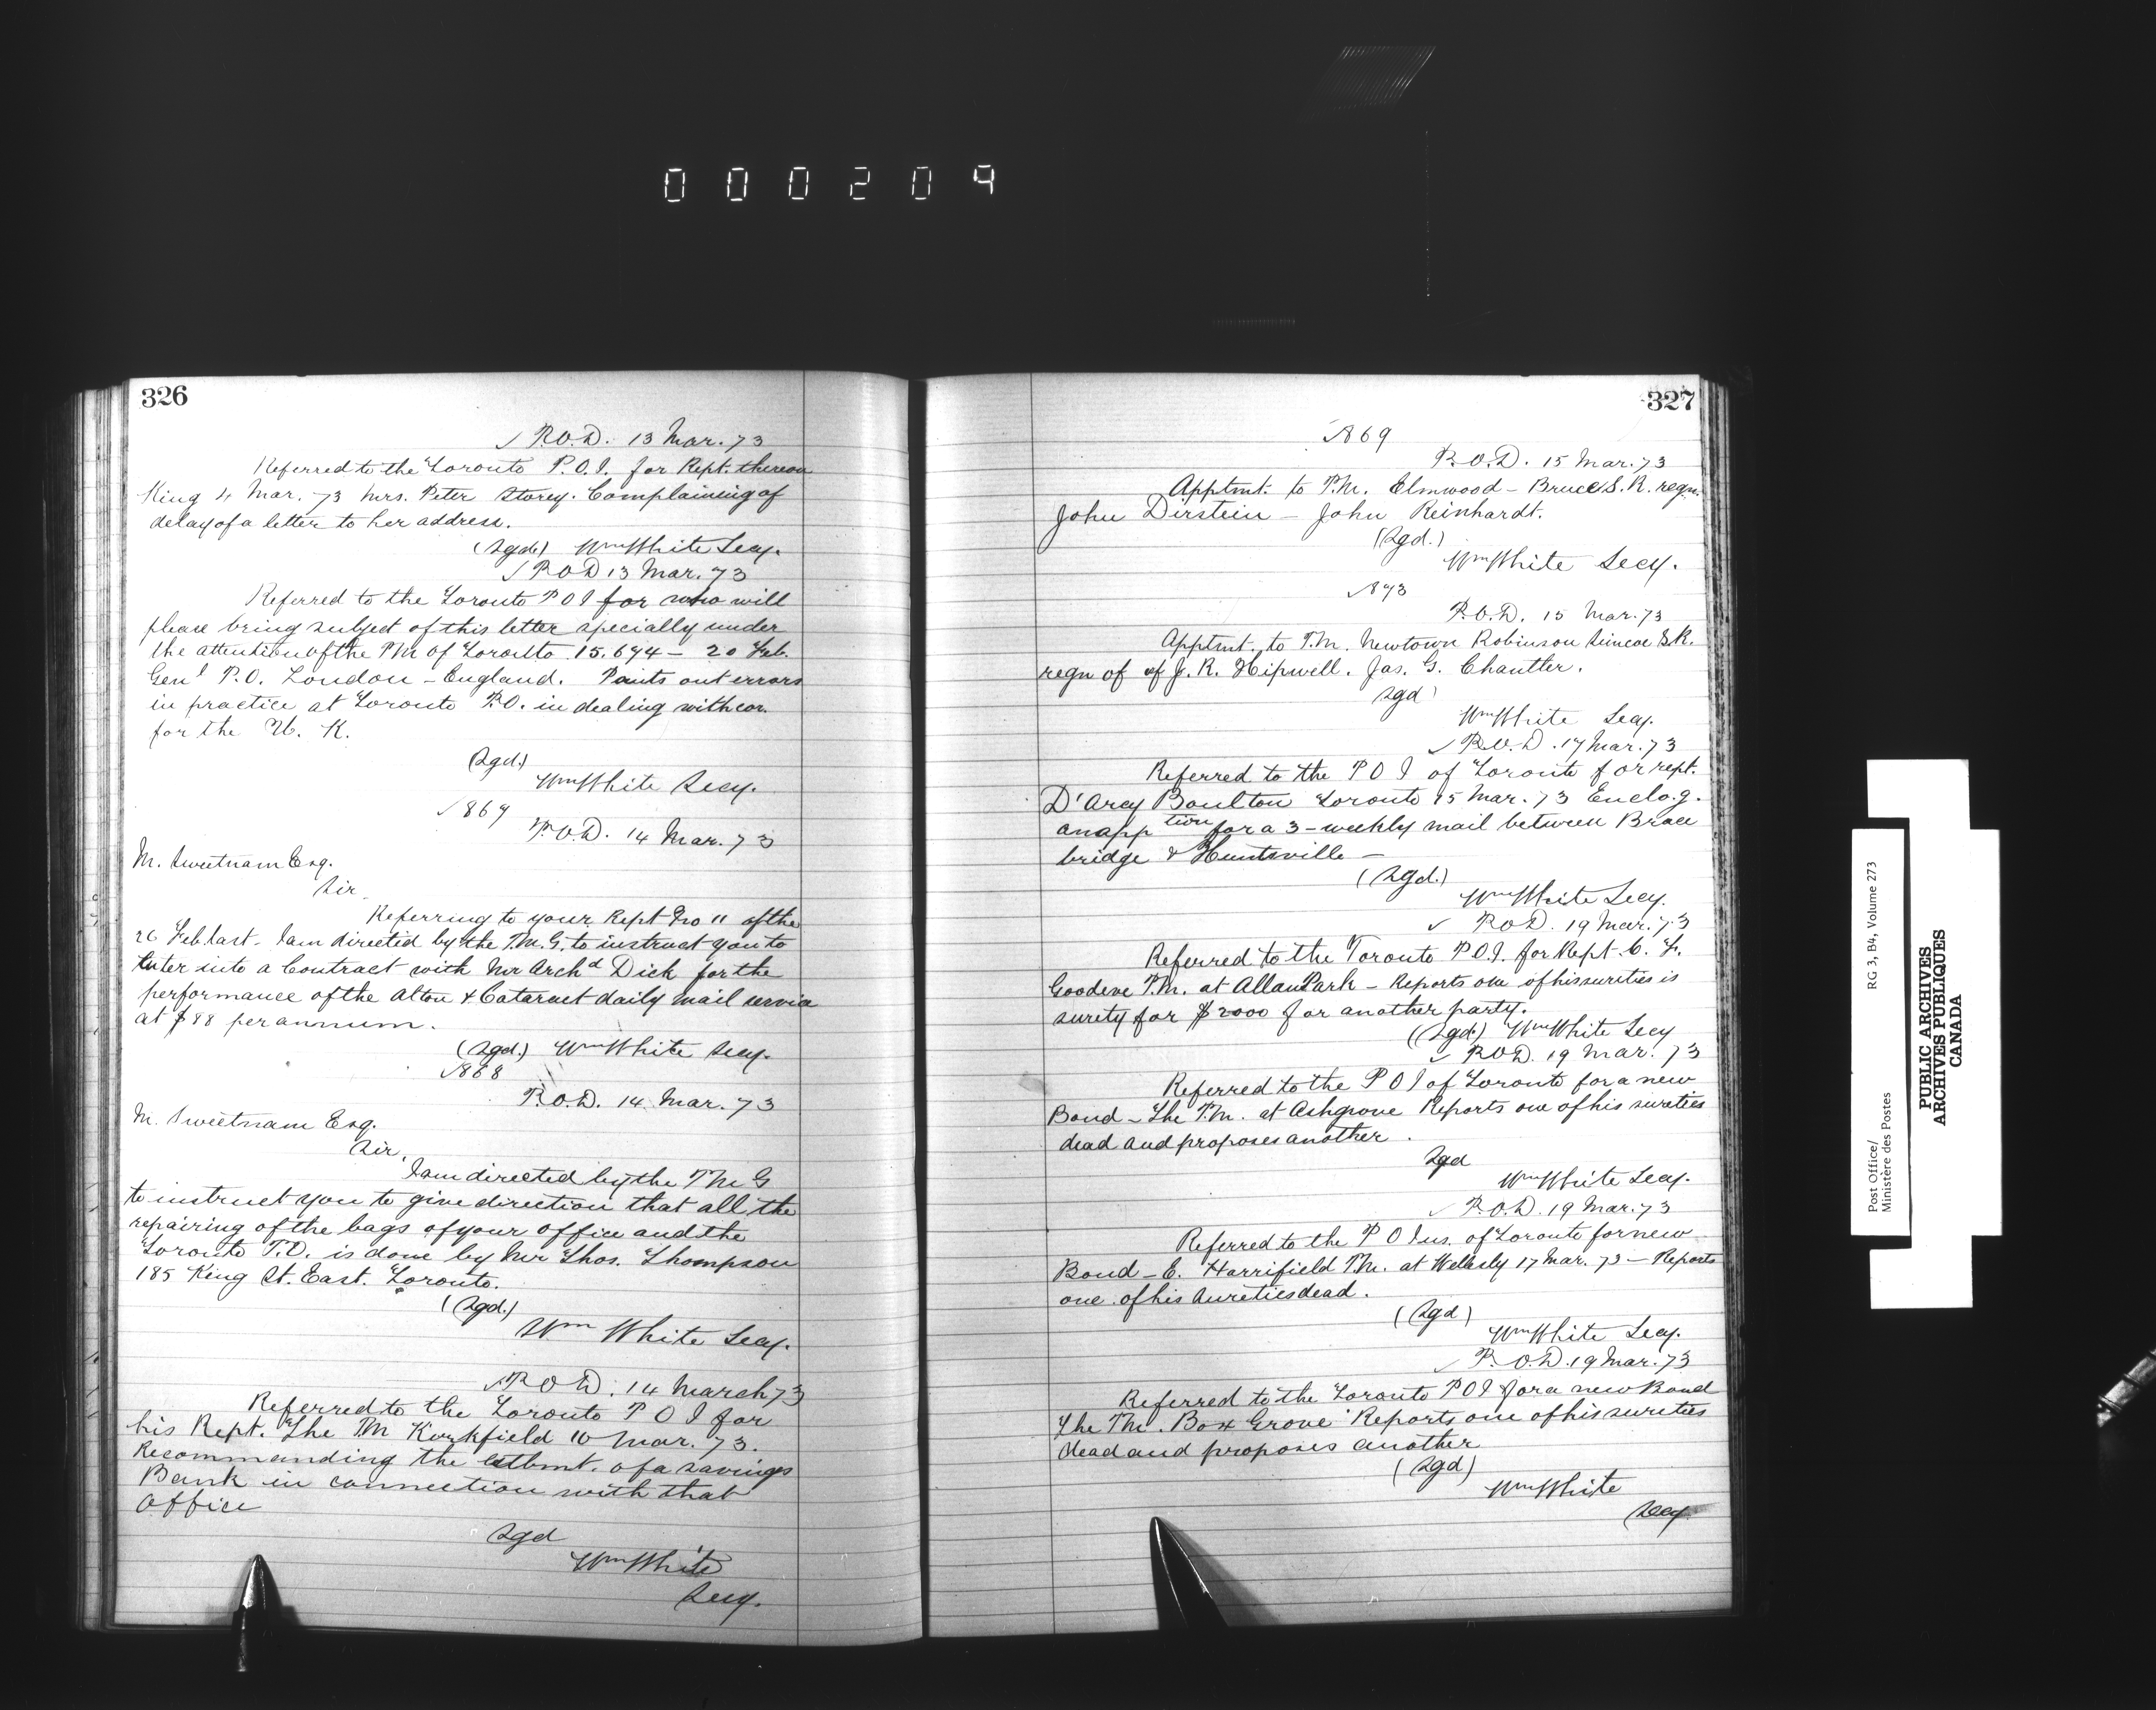 000209
326
✓ P.O.D. 13 Mar. 73
Referred to the Toronto P.O.I. for Rept. thereon
King 4 Mar. 73 Mrs. Peter Storey. Complaining of
delay of a letter to her address.
(Sgd.) Wm White Secy.
✓ P O D 13 Mar. 73
Referred to the Toronto P O I for who will
please bring subject of this letter specially under
the attention of the P M of Toronto 15.694 — 20 Feb.
Genl P.O. London — England. Points out errors
in practice at Toronto P.O. in dealing with cor.
for the U. K.
(Sgd.)
Wm White Secy.
✓ 869
P.O.D. 14 Mar. 73
M. Sweetnam Esq.
Sir,
Referring to your Rept No 11 of the
26 Feb. last. I am directed by the P.M.G. to instruct you to
Enter into a Contract with Mr Archd Dick for the
performance of the Alton & Cataract daily mail service
at $88 per annum.
(Sgd.) Wm White Secy.
✓868
P.O.D. 14 Mar. 73
M. Sweetnam Esq.
Sir,
I am directed by the P M G
to instruct you to give direction that all the
repairing of the bags of your office and the
Toronto P.O. is done by Mr Thos. Thompson
185 King St. East. Toronto.
(Sgd.)
Wm White Secy.
✓ P O D. 14 March 73
Referred to the Toronto P O I for
his Rept. The P M Kirkfield 10 Mar. 73.
Recommanding the estbmt. of a savings
Bank in connection with that
Office
Sgd
Wm White
Secy.
327
✓869
P.O.D. 15 Mar. 73
Apptmt. to P.M. Elmwood — Bruce S. R. regn.
John Dirstein — John Reinhardt.
(Sgd.)
Wm White Secy.
✓873
P.O.D. 15 Mar. 73
Apptmt. to P.M. Newtown Robinson Simcoe S.R.
regn of of J. R. Hipwell. Jas. G. Chantler.
Sgd
Wm White Secy.
✓ P.O.D. 17 Mar. 73
Referred to the P O I of Toronto for rept.
D'Arcy Boulton Toronto 15 Mar. 73 Enclo.g.
an app tion for a 3-weekly mail between Brace
bridge & Huntsville —
(Sgd.)
Wm White Secy.
✓ P.O.D. 19 Mar. 73
Referred to the Toronto P.O.I. for Rept. C. F.
Goodeve P.M. at Allan Park — Reports one of his sureties is
surety for $2000 for another party.
(Sgd.) Wm White Secy
✓ P.O.D. 19 Mar. 73
Referred to the P O I of Toronto for a new
Bond — The P.M. at Ashgrove Reports one of his sureties
dead and proposes another.
Sgd
Wm White Secy.
✓ P.O.D. 19 Mar. 73
Referred to the P O Ins. of Toronto for new
Bond — E. Harrifield P.M. at Wellesly 17 Mar. 73 — Reports
one of his sureties dead.
(Sgd)
Wm White Secy.
✓ P.O.D. 19 Mar. 73
Referred to the Toronto P O I for a new Bond
The P M. Box Grove Reports one of his sureties
dead and proposes another
(Sgd)
Wm White
Secy
Post Office/
Ministère des Postes
RG 3, B4, Volume 273
PUBLIC ARCHIVES
ARCHIVES PUBLIQUES
CANADA